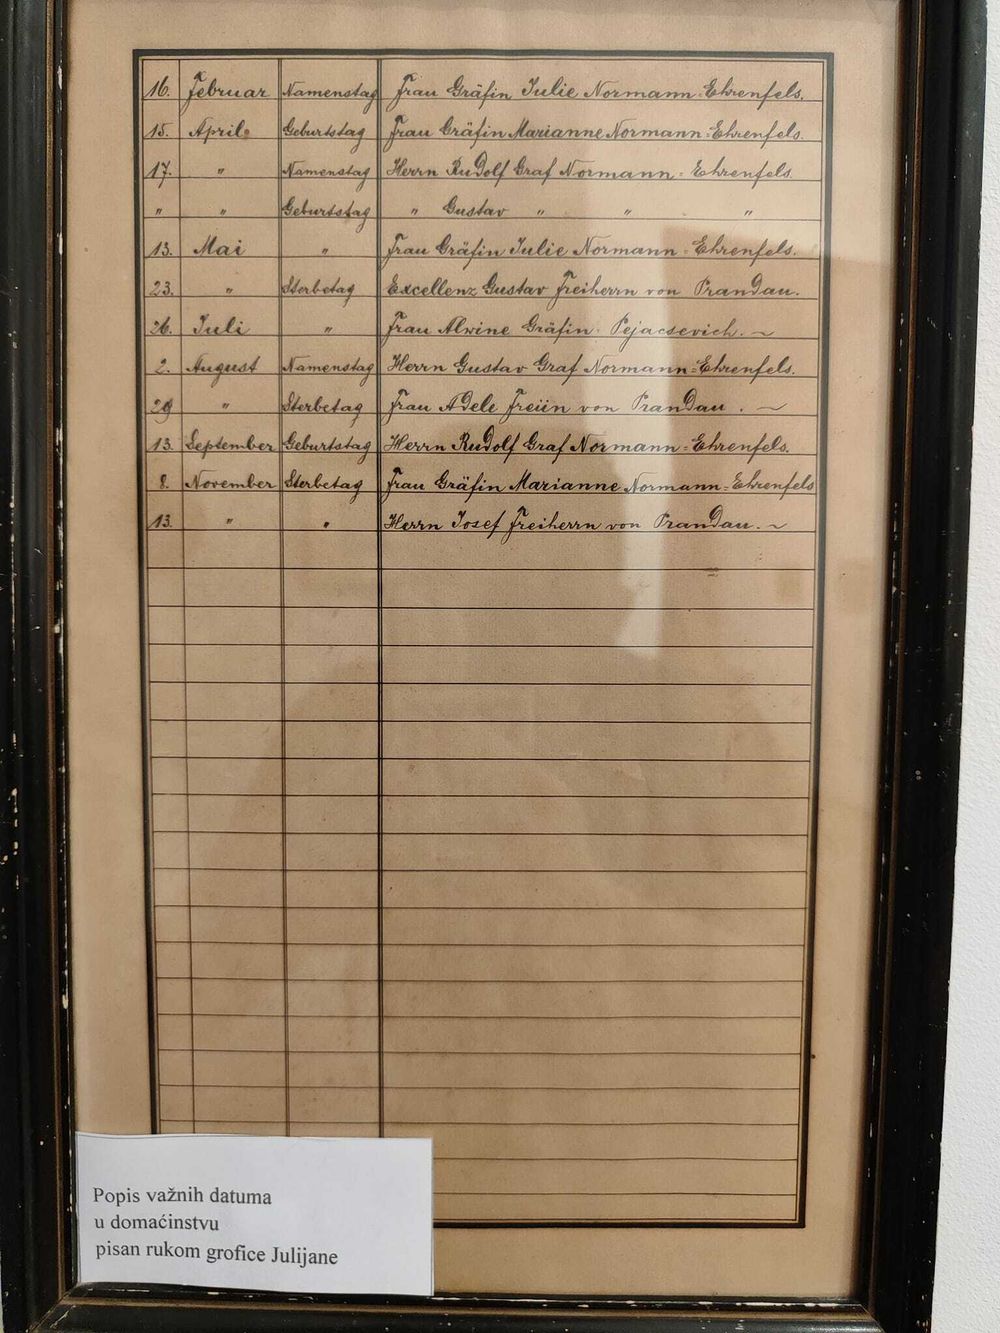 16. Februar Namenstag Frau Gräfin Julie Normann=Ehrenfels.
15. April. Geburtstag Frau Gräfin Marianne Normann=Ehrenfels.
17. " Namenstag Herrn Rudolf Graf Normann=Ehrenfels.
" " Geburtstag " Gustav " " "
13. Mai " Frau Gräfin Julie Normann=Ehrenfels.
23. " Sterbetag Excellenz Gustav Freiherrn von Prandau.
26. Juli " Frau Alwine Gräfin Pejacsevich. ~
2. August Namenstag Herrn Gustav Graf Normann=Ehrenfels.
29 " Sterbetag Frau Adele Freiin von Prandau. ~
13. September Geburtstag Herrn Rudolf Graf Normann=Ehrenfels.
8. November Sterbetag Frau Gräfin Marianne Normann=Ehrenfels
13. " " Herrn Josef Freiherrn von Prandau. ~
Popis važnih datuma
u domaćinstvu
pisan rukom grofice Julijane